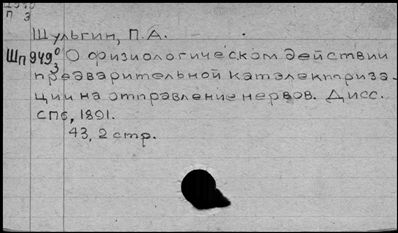 П 3
Шульгин, П.А.
Шп 949 0/3 О физиологическом действии
предварительной катэлектриза-
ции на отправление нервов. Дисс.
СПб, 1891.
43, 2 стр.